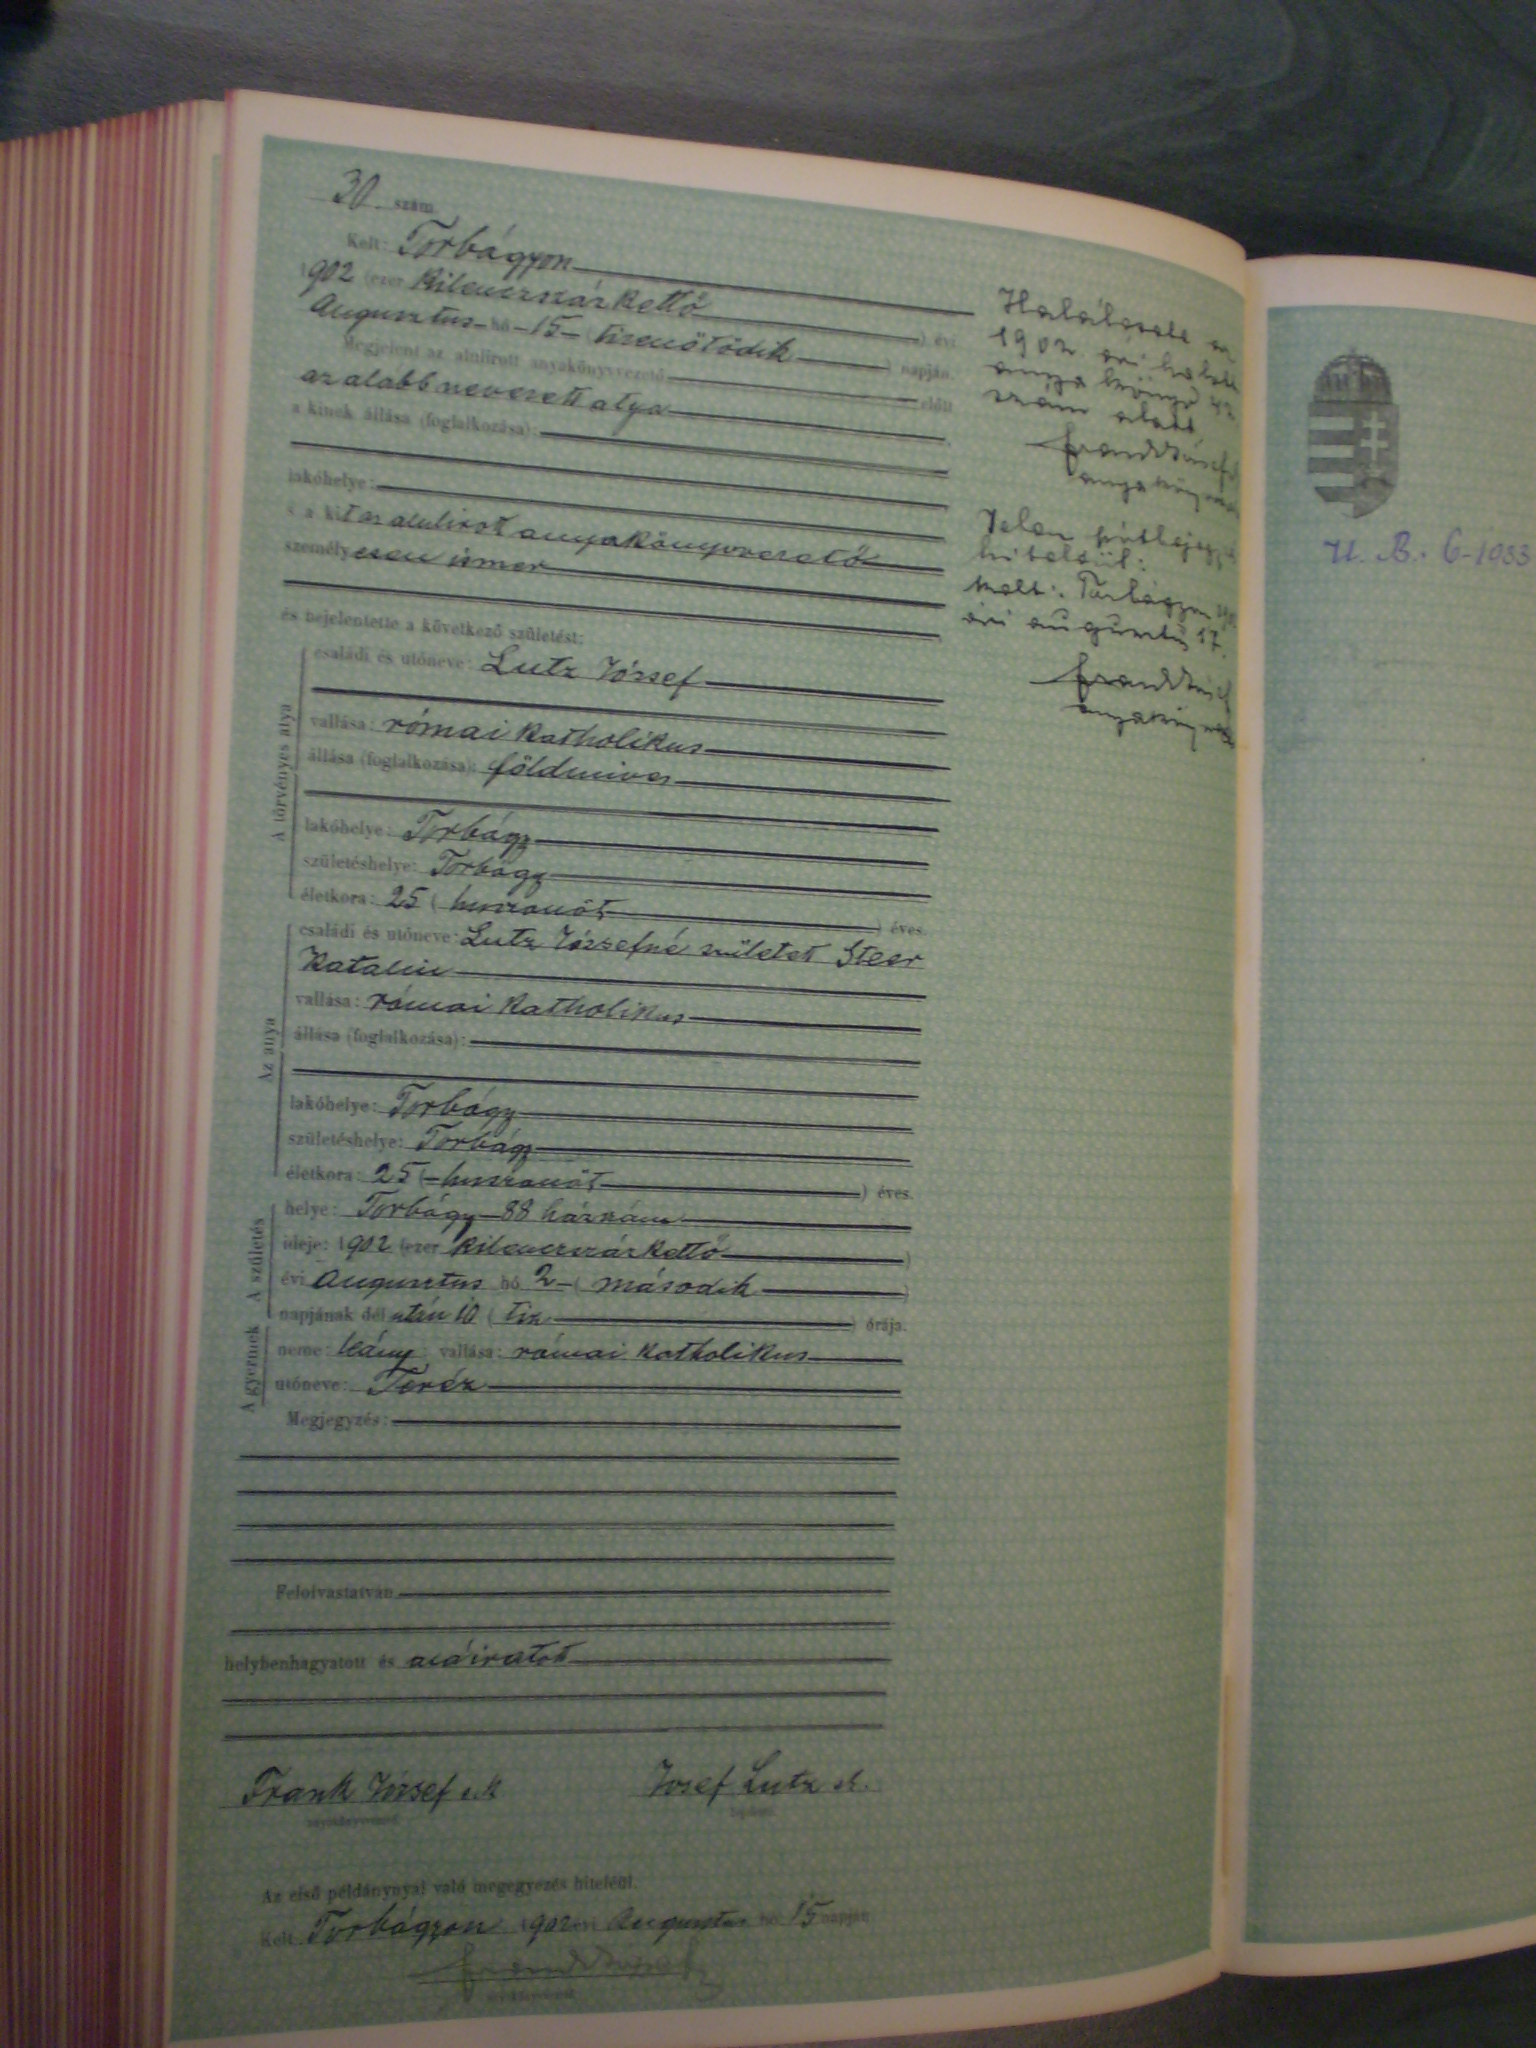 30. szám.
Kelt: Torbágyon
1902 (ezer kilencszázkettő ) évi
Augusztus hó 15 ( tizenötödik ) napján.
Megjelent az alulirott anyakönyvvezető előtt
az alább nevezett atya
a kinek állása (foglalkozása):
lakóhelye:
s a kit az alulirott anyakönyvvezető
személyesen ismer
és bejelentette a következő születést:
A törvényes atya
családi és utóneve: Lutz József
vallása: római katholikus
állása (foglalkozása): földmives
lakóhelye: Torbágy
születéshelye: Torbágy
életkora: 25 ( huszonöt ) éves.
Az anya
családi és utóneve: Lutz Józsefné született Steer
Katalin
vallása: római katholikus
állása (foglalkozása):
lakóhelye: Torbágy
születéshelye: Torbágy
életkora: 25 ( huszonöt ) éves.
A születés
helye: Torbágy 88 házszám
ideje: 1902 (ezer kilencszázkettő )
évi Augusztus hó 2 ( második )
napjának dél után 10 ( tiz ) órája.
A gyermek
neme: leány vallása: római katholikus
utóneve: Teréz
Megjegyzés:
Felolvastatván
helybenhagyatott és aláiratott
Frank József s.k. Josef Lutz s.k.
anyakönyvvezető bejelentő
Az első példánynyal való megegyezés hiteléül.
Kelt Torbágyon 1902 évi Augusztus hó 15 napján
Halálesete az
1902 évi halotti
anya könyv 42
szám alatt
Frank József
Jelen
hiteléül:
Kelt: Torbágyon
évi augusztus 17.
Frank József
U. B. 6-1933